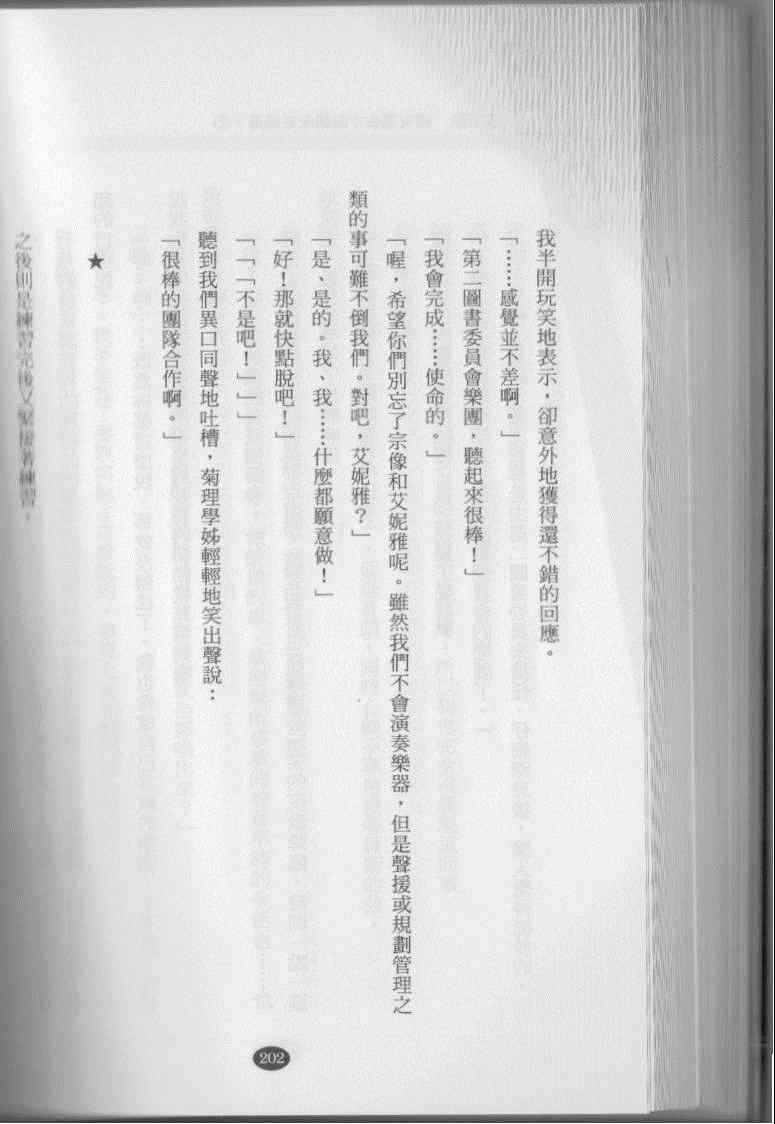 我半開玩笑地表示，卻意外地獲得還不錯的回應。
「……感覺並不差啊。」
「第二圖書委員會樂團，聽起來很棒！」
「我會完成……使命的。」
「喔，希望你們別忘了宗像和艾妮雅呢。雖然我們不會演奏樂器，但是聲援或規劃管理之
類的事可難不倒我們。對吧，艾妮雅？」
「是、是的。我、我……什麼都願意做！」
「好！那就快點脫吧！」
「「「不是吧！」」」
聽到我們異口同聲地吐槽，菊理學姊輕輕地笑出聲說：
「很棒的團隊合作啊。」
★
之後則是練習完後又緊接著練習。
202